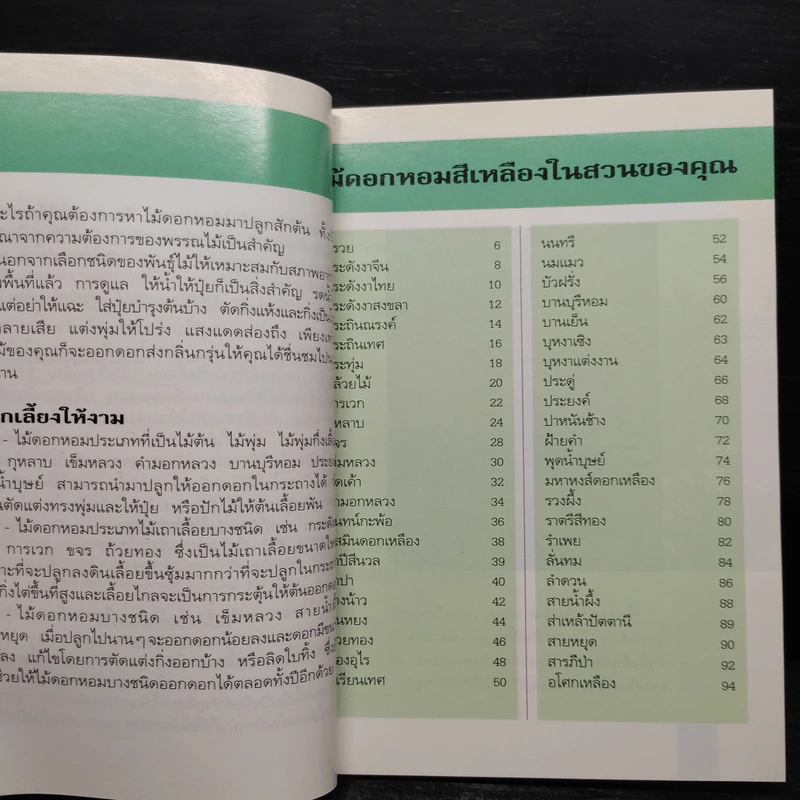 ะไรถ้าคุณต้องการหาไม้ดอกหอมมาปลูกสักต้น ทั้ง
ณาจากความต้องการของพรรณไม้เป็นสำคัญ
นอกจากเลือกชนิดของพันธุ์ไม้ให้เหมาะสมกับสภาพอา
พพื้นที่แล้ว การดูแล ให้น้ำให้ปุ๋ยก็เป็นสิ่งสำคัญ รดน้ำ
แต่อย่าให้แฉะ ใส่ปุ๋ยบำรุงต้นบ้าง ตัดกิ่งแห้งและกิ่งเป็น
ลายเสีย แต่งพุ่มให้โปร่ง แสงแดดส่องถึง เพียงเท
ม้ของคุณก็จะออกดอกส่งกลิ่นกรุ่นให้คุณได้ชื่นชมไปน
าน
กเลี้ยงให้งาม
- ไม้ดอกหอมประเภทที่เป็นไม้ต้น ไม้พุ่ม ไม้พุ่มกึ่งเลื้
กุหลาบ เข็มหลวง คำมอกหลวง บานบุรีหอม ประย
น้ำบุษย์ สามารถนำมาปลูกให้ออกดอกในกระถางได้
นตัดแต่งทรงพุ่มและให้ปุ๋ย หรือปักไม้ให้ต้นเลื้อยพัน
- ไม้ดอกหอมประเภทไม้เถาเลื้อยบางชนิด เช่น กระดั
การเวก ขจร ถ้วยทอง ซึ่งเป็นไม้เถาเลื้อยขนาดให
าะที่จะปลูกลงดินเลื้อยขึ้นซุ้มมากกว่าที่จะปลูกในกระถ
กิ่งไต่ขึ้นที่สูงและเลื้อยไกลจะเป็นการกระตุ้นให้ต้นออกดอ
- ไม้ดอกหอมบางชนิด เช่น เข็มหลวง สายน้ำ
หยุด เมื่อปลูกไปนานๆจะออกดอกน้อยลงและดอกมีขน
ลง แก้ไขโดยการตัดแต่งกิ่งออกบ้าง หรือลิดใบทิ้ง ซึ่ง
ช่วยให้ไม้ดอกหอมบางชนิดออกดอกได้ตลอดทั้งปีอีกด้วย
ม้ดอกหอมสีเหลืองในสวนของคุณ
รวย 6
ระดังงาจีน 8
ระดังงาไทย 10
ระดังงาสงขลา 12
ระถินณรงค์ 14
ระถินเทศ 16
ระทุ่ม 18
ล้วยไม้ 20
ารเวก 22
หลาบ 24
จร 28
มหลวง 30
ดเค้า 32
ามอกหลวง 34
นทน์กะพ้อ 36
สมินดอกเหลือง 38
าปีสีนวล 39
าปา 40
างน้าว 42
นหยง 44
วยทอง 46
องอุไร 48
เรียนเทศ 50
นนทรี 52
นมแมว 54
บัวฝรั่ง 56
บานบุรีหอม 60
บานเย็น 62
บุหงาเซิง 63
บุหงาแต่งงาน 64
ประดู่ 66
ประยงค์ 68
ปาหนันช้าง 70
ฝ้ายคำ 72
พุดน้ำบุษย์ 74
มหาหงส์ดอกเหลือง 76
รวงผึ้ง 78
ราตรีสีทอง 80
รำเพย 82
ลั่นทม 84
ลำดวน 86
สายน้ำผึ้ง 88
ส่าเหล้าปัตตานี 89
สายหยุด 90
สารภีป่า 92
อโศกเหลือง 94